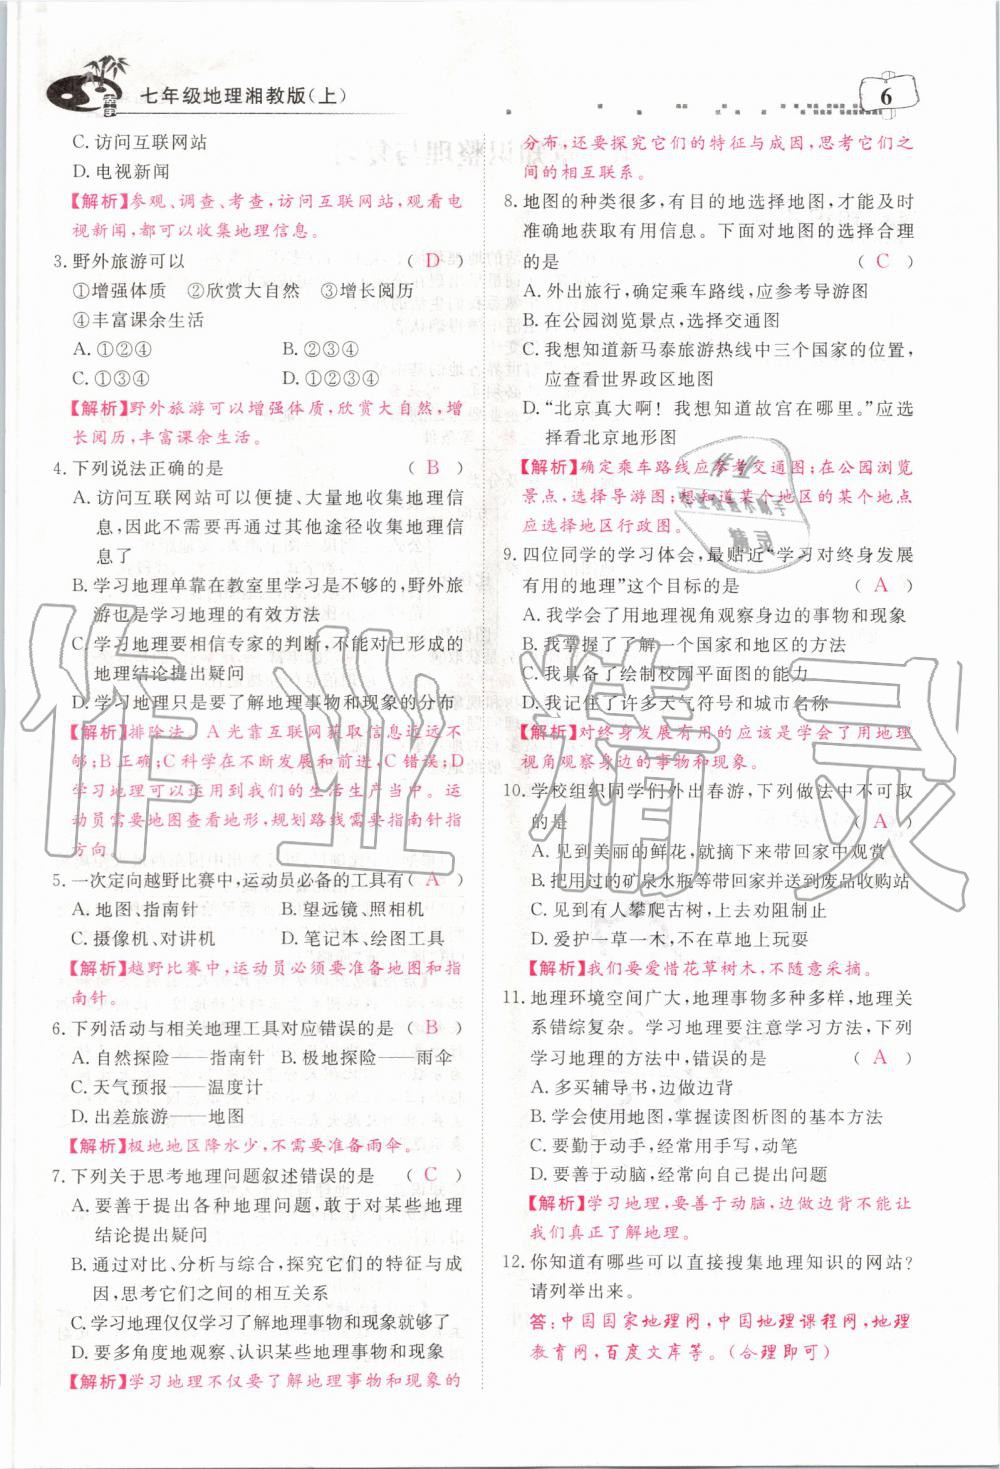 七年级地理湘教版(上)
6
C. 访问互联网站
D. 电视新闻
【解析】参观、调查、考查,访问互联网站,观看电
视新闻,都可以收集地理信息。
3. 野外旅游可以 ( D )
①增强体质 ②欣赏大自然 ③增长阅历
④丰富课余生活
A. ①②④ B. ①②③
C. ①③④ D. ①②③④
【解析】野外旅游可以增强体质,欣赏大自然,增
长阅历,丰富课余生活。
4. 下列说法正确的是 ( B )
A. 访问互联网站可以便捷、大量地收集地理信
息,因此不再需要通过其他途径收集地理信
息了
B. 学习地理单靠在教室里学习是不够的,野外旅
游也是学习地理的有效方法
C. 学习地理要相信专家的判断,不能对已形成的
地理结论提出疑问
D. 学习地理只是要了解地理事物和现象的分布
【解析】排除法。A 光靠互联网获取信息远远不
够;B 正确;C 科学在不断发展和前进,C 错误;D
学习地理可以运用到我们的生活生产当中。运
动员需要地图查看地形,规划路线需要指南针指
方向。
5. 一次定向越野比赛中,运动员必备的工具有( A )
A. 地图、指南针 B. 望远镜、照相机
C. 摄像机、对讲机 D. 笔记本、绘图工具
【解析】越野比赛中,运动员必须要准备地图和指
南针。
6. 下列活动与相关地理工具对应错误的是 ( B )
A. 自然探险——指南针 B. 极地探险——雨伞
C. 天气预报——温度计
D. 出差旅游——地图
【解析】极地地区降水少,不需要准备雨伞。
7. 下列关于思考地理问题叙述错误的是 ( C )
A. 要善于提出各种地理问题,敢于对某些地理
结论提出疑问
B. 通过对比、分析与综合,探究它们的特征与成
因,思考它们之间的相互关系
C. 学习地理仅仅学习了解地理事物和现象就够了
D. 要多角度地观察、认识某些地理事物和现象
【解析】学习地理不仅要了解地理事物和现象的
分布,还要探究它们的特征与成因,思考它们之
间的相互联系。
8. 地图的种类很多,有目的地选择地图,才能及时
准确地获取有用信息。下面对地图的选择合理
的是 ( C )
A. 外出旅行,确定乘车路线,应参考导游图
B. 在公园浏览景点,选择交通图
C. 我想知道新马泰旅游热线中三个国家的位置,
应查看世界政区地图
D. “北京真大啊! 我想知道故宫在哪里。”应选
择看北京地形图
【解析】确定乘车路线应参考交通图;在公园浏览
景点,选择导游图;想知道某个地区的某个地点
应选择地区行政图。
9. 四位同学的学习体会,最贴近“学习对终身发展
有用的地理”这个目标的是 ( A )
A. 我学会了用地理视角观察身边的事物和现象
B. 我掌握了了解一个国家和地区的方法
C. 我具备了绘制校园平面图的能力
D. 我记住了许多天气符号和城市名称
【解析】对终身发展有用的应该是学会了用地理
视角观察身边的事物和现象。
10. 学校组织同学们外出春游,下列做法中不可取
的是 ( A )
A. 见到美丽的鲜花,就摘下来带回家中观赏
B. 把用过的矿泉水瓶等带回家并送到废品收购站
C. 见到有人攀爬古树,上去劝阻制止
D. 爱护一草一木,不在草地上玩耍
【解析】我们要爱惜花草树木,不随意采摘。
11. 地理环境空间广大,地理事物多种多样,地理关
系错综复杂。学习地理要注意学习方法,下列
学习地理的方法中,错误的是 ( A )
A. 多买辅导书,边做边背
B. 学会使用地图,掌握读图析图的基本方法
C. 要勤于动手,经常用手写,动笔
D. 要善于动脑,经常向自己提出问题
【解析】学习地理,要善于动脑,边做边背不能让
我们真正了解地理。
12. 你知道有哪些可以直接搜集地理知识的网站?
请列举出来。
答:中国国家地理网,中国地理课程网,地理
教育网,百度文库等。(合理即可)
作业精灵
作业
精灵